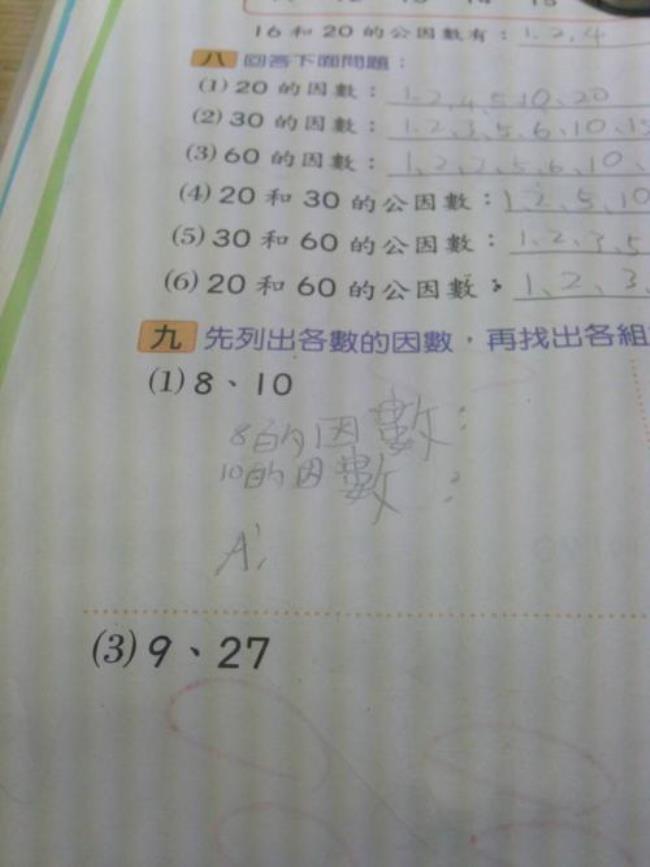 16 和 20 的公因數有：1, 2, 4
八 回答下面問題：
(1) 20 的因數：1、2、4、5、10、20
(2) 30 的因數：1、2、3、5、6、10、15
(3) 60 的因數：1、2、2、5、6、10、
(4) 20 和 30 的公因數：1、2、5、10
(5) 30 和 60 的公因數：1、2、3、5
(6) 20 和 60 的公因數：1、2、3、
九 先列出各數的因數，再找出各組
(1) 8、10
8的因數：
10的因數：
A：
(3) 9、27